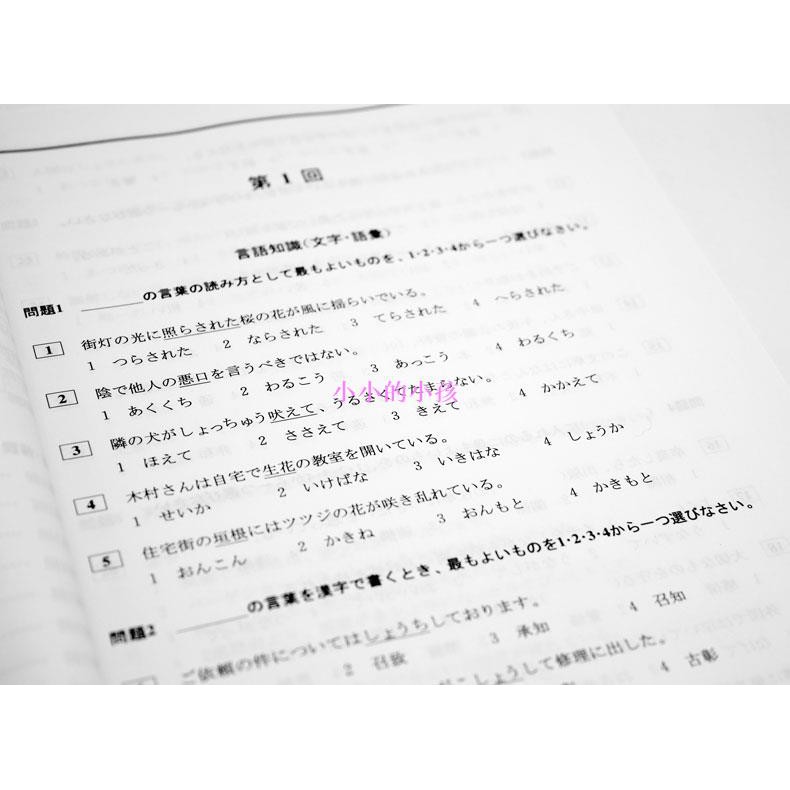 第1回
言語知識(文字・語彙)
問題1 ______の言葉の読み方として最もよいものを、1・2・3・4から一つ選びなさい。
1 街灯の光に照らされた桜の花が風に揺らいでいる。
1 つらされた 2 ならされた 3 てらされた 4 へらされた
2 陰で他人の悪口を言うべきではない。
1 あくくち 2 わるこう 3 あっこう 4 わるくち
3 隣の犬がしょっちゅう吠えて、うるさくてたまらない。
1 ほえて 2 ささえて 3 きえて 4 かかえて
小小的小孩
4 木村さんは自宅で生花の教室を開いている。
1 せいか 2 いけばな 3 いきはな 4 しょうか
5 住宅街の垣根にはツツジの花が咲き乱れている。
1 おんこん 2 かきね 3 おんもと 4 かきもと
問題2 ______の言葉を漢字で書くとき、最もよいものを1・2・3・4から一つ選びなさい。
ご依頼の件についてはしょうちしております。
2 召致 3 承知 4 召知
こしょうして修理に出した。
4 古彰